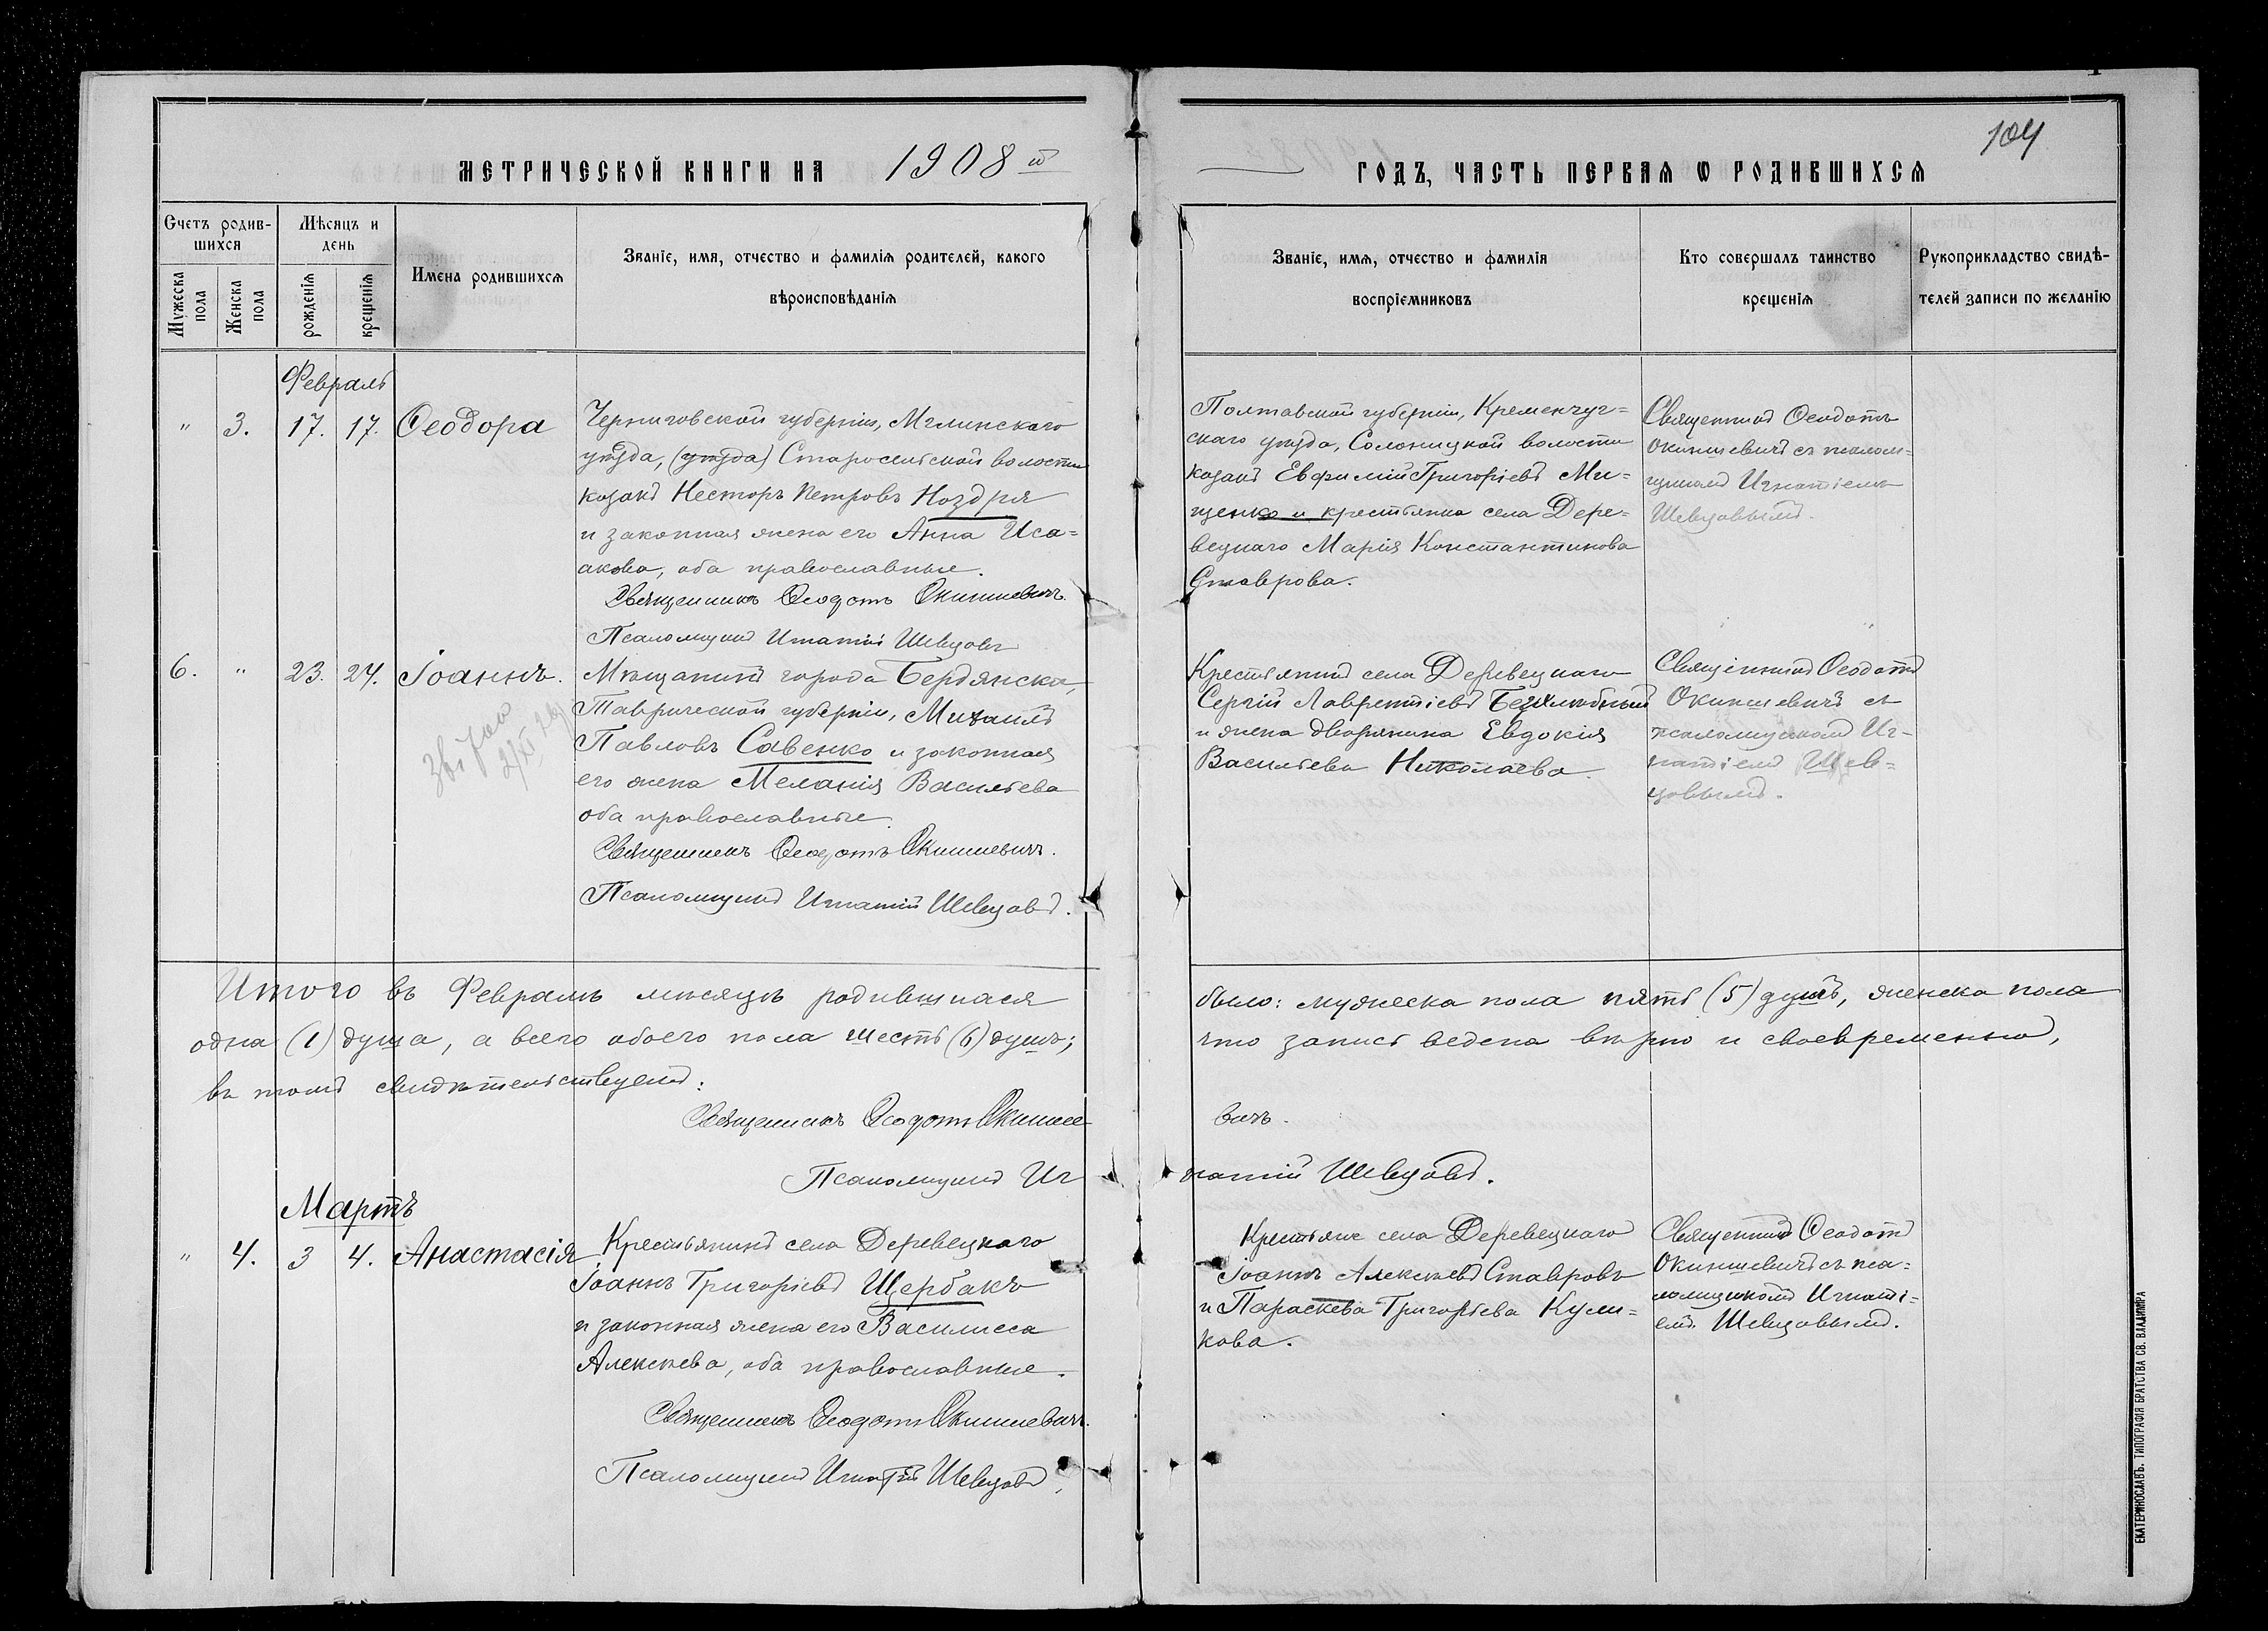 104
МЕТРИЧЕСКОЙ КНИГИ НА 1908й
ГОДЪ, ЧАСТЬ ПЕРВАЯ Ѡ РОДИВШИХСЯ
Счетъ родив-
шихся
Мужеска пола
Женска пола
Мѣсяцъ и
день
рожденія
крещенія
Имена родившихся
Званіе, имя, отчество и фамилія родителей, какого
вѣроисповѣданія
Званіе, имя, отчество и фамилія
воспріємниковъ
Кто совершалъ таинство
крещенія
Рукоприкладство свидѣ-
телей записи по желанію
Февраль
" 3. 17. 17. Ѳеодора
Черниговской губерніи, Мглинскаго
уѣзда, (уѣзда) Старосельской волости
козакъ Несторъ Петровъ Ноздря
и законная жена его Анна Иса=
акова, оба православные.
Священникъ Ѳеодотъ Окиншевичъ.
Псаломщикъ Игнатій Шевцовъ
Полтавской губерніи, Кременчуг=
скаго уѣзда, Солоницкой волости
козакъ Евфимій Григоріевъ Ми=
щенко и крестьянка села Дере=
вецкаго Марія Константинова
Ставрова.
Священникъ Ѳеодотъ
Окиншевичъ съ псалом=
щикомъ Игнатіемъ
Шевцовымъ.
6. " 23. 24. Іоаннъ.
Мѣщанинъ города Бердянска,
Таврической губерніи, Михаилъ
Павловъ Савенко и законная
его жена Меланія Васильева
оба православные.
Священникъ Ѳеодотъ Окиншевичъ.
Псаломщикъ Игнатій Шевцовъ.
Крестьянинъ села Деревецкаго
Сергій Лаврентіевъ
и жена дворянина Евдокія
Васильева Николаева.
Священникъ Ѳеодотъ
Окиншевичъ съ
псаломщикомъ Иг-
натіемъ Шев=
цовымъ.
Итого въ Февралѣ мѣсяцѣ родившихся
было: мужеска пола пять (5) душъ, женска пола
одна (1) душа, а всего обоего пола шесть (6) душъ;
что запись ведена вѣрно и своевременно,
въ томъ свидѣтельствуемъ:
Священникъ Ѳеодотъ Окинше
вичъ.
Псаломщикъ Иг
натій Шевцовъ.
Мартъ
" 4. 3 4. Анастасія
Крестьянинъ села Деревецкаго
Іоаннъ Григорьевъ Щербакъ
и законная жена его Василисса
Алексѣева, оба православные.
Священникъ Ѳеодотъ Окиншевичъ.
Псаломщикъ Игнатій Шевцовъ.
Крестьяне села Деревецкаго
Іоаннъ Алексѣевъ Ставровъ
и Параскева Григорьева Кули=
кова.
Священникъ Ѳеодотъ
Окиншевичъ съ пса=
ломщикомъ Игнаті=
емъ Шевцовымъ.
ЕКАТЕРИНОСЛАВЪ. ТИПОГРАФІЯ БРАТСТВА СВ. ВЛАДИМІРА